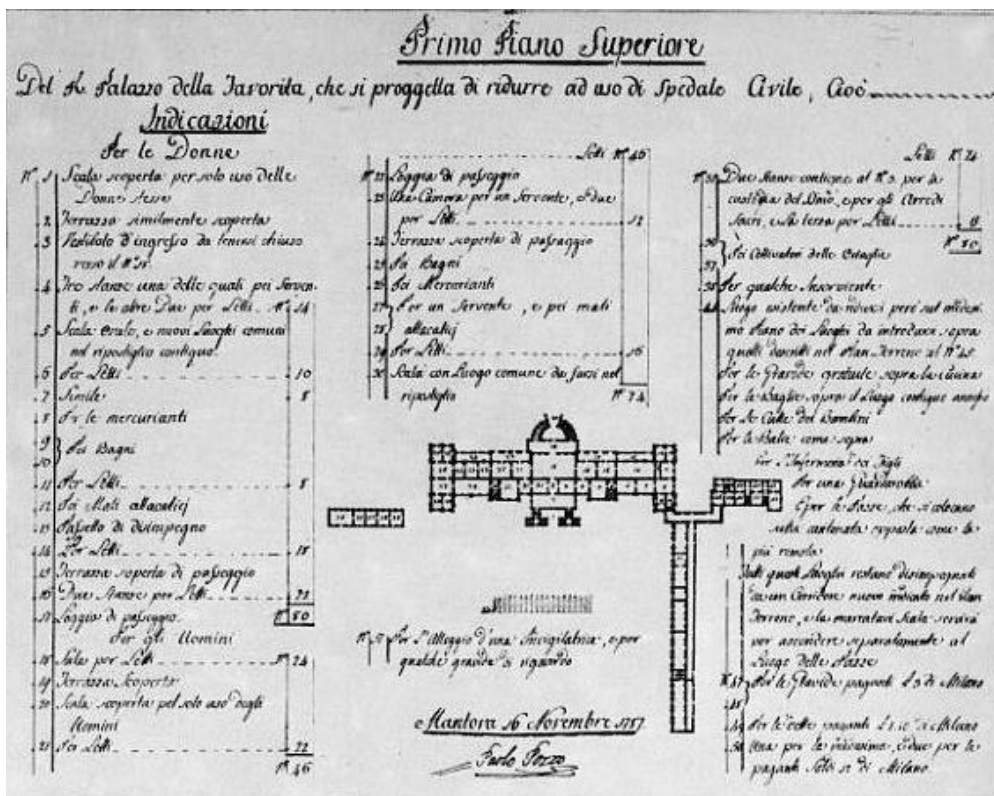 Primo Piano Superiore
Del R. Palazzo della Favorita, che si proggetta di ridurre ad uso di Spedale Civile, Cioè
Indicazioni
Per le Donne
N.° 1 Scala scoperta per solo uso delle
Donne stesse
2 Terrazza similmente scoperta
3 Vestibolo d'ingresso da tenersi chiuso
verso il N.°
4 Tre stanze una delle quali pei Serven-
ti, e le altre Due per Letti. N.° 14
5 Scala, e nuovi Luoghi comuni
nel ripostiglio contiguo.
6 Per Letti 10
7 Simile 8
8 Per le mercurianti
9
10 } Pei Bagni
11 Per Letti 8
12 Pei Mali attacaticj
13 Passetto di disimpegno
14 Per Letti 18
15 Terrazza scoperta di passeggio
16 Due stanze per Letti 22
17 Loggia di passeggio N.° 80
Per gli Uomini
18 Sala per Letti N.° 24
19 Terrazza Scoperta
20 Scala scoperta pel solo uso degli
Uomini
21 Per Letti 22
N.° 46
Letti N.° 46
N.° 22 Loggia di passeggio
23 Una Camera per un Servente, e due
per Letti 12
24 Terrazza scoperta di passaggio
25 Pei Bagni
26 Pei Mercurianti
27 } Per un Servente, e pei mali
28 attacaticj
29 Per Letti 16
30 Scala con Luogo comune da farsi nel
ripostiglio N.° 74
Letti N.° 74
Due stanze contigue al N.° 3. per la
custodia del, e per gli Arredi
Sacri, e la terza per Letti
N.° 80
36
37 } Pei Coltivatori delle
38 Per qualche Inserviente
Luogo esistente da ridursi però sul medesi-
mo Piano dei Luoghi da introdursi sopra
quelli descritti nel Pian Terreno al N.° 45.
Per le Gravide gratuite sopra la cucina
Per le Baglie sopra il Luogo contiguo
Per le Culle dei Bambini
Per le Balie come sopra
Per l'Infermeria dei Figli
Per una Guardarobba
E per le Pazze, che si colocano
nella cantonata opposta come la
più remota
Tutti questi Luoghi restano disimpegnati
da un Corridore nuovo indicato nel Pian
Terreno, e la marcata Scala servirà
per ascendere separatamente al
Luogo delle Pazze
N.° 47 Per le Gravide paganti L. 3 di Milano
48
49 Per le dette paganti di Milano
50 Una per le, e due per le
paganti Soldi di Milano.
N.° 51 Per l'Alloggio d'una Invigilatrice, e per
qualche gravida di riguardo
Mantova 16 Novembre 1787
Paolo Pozzo